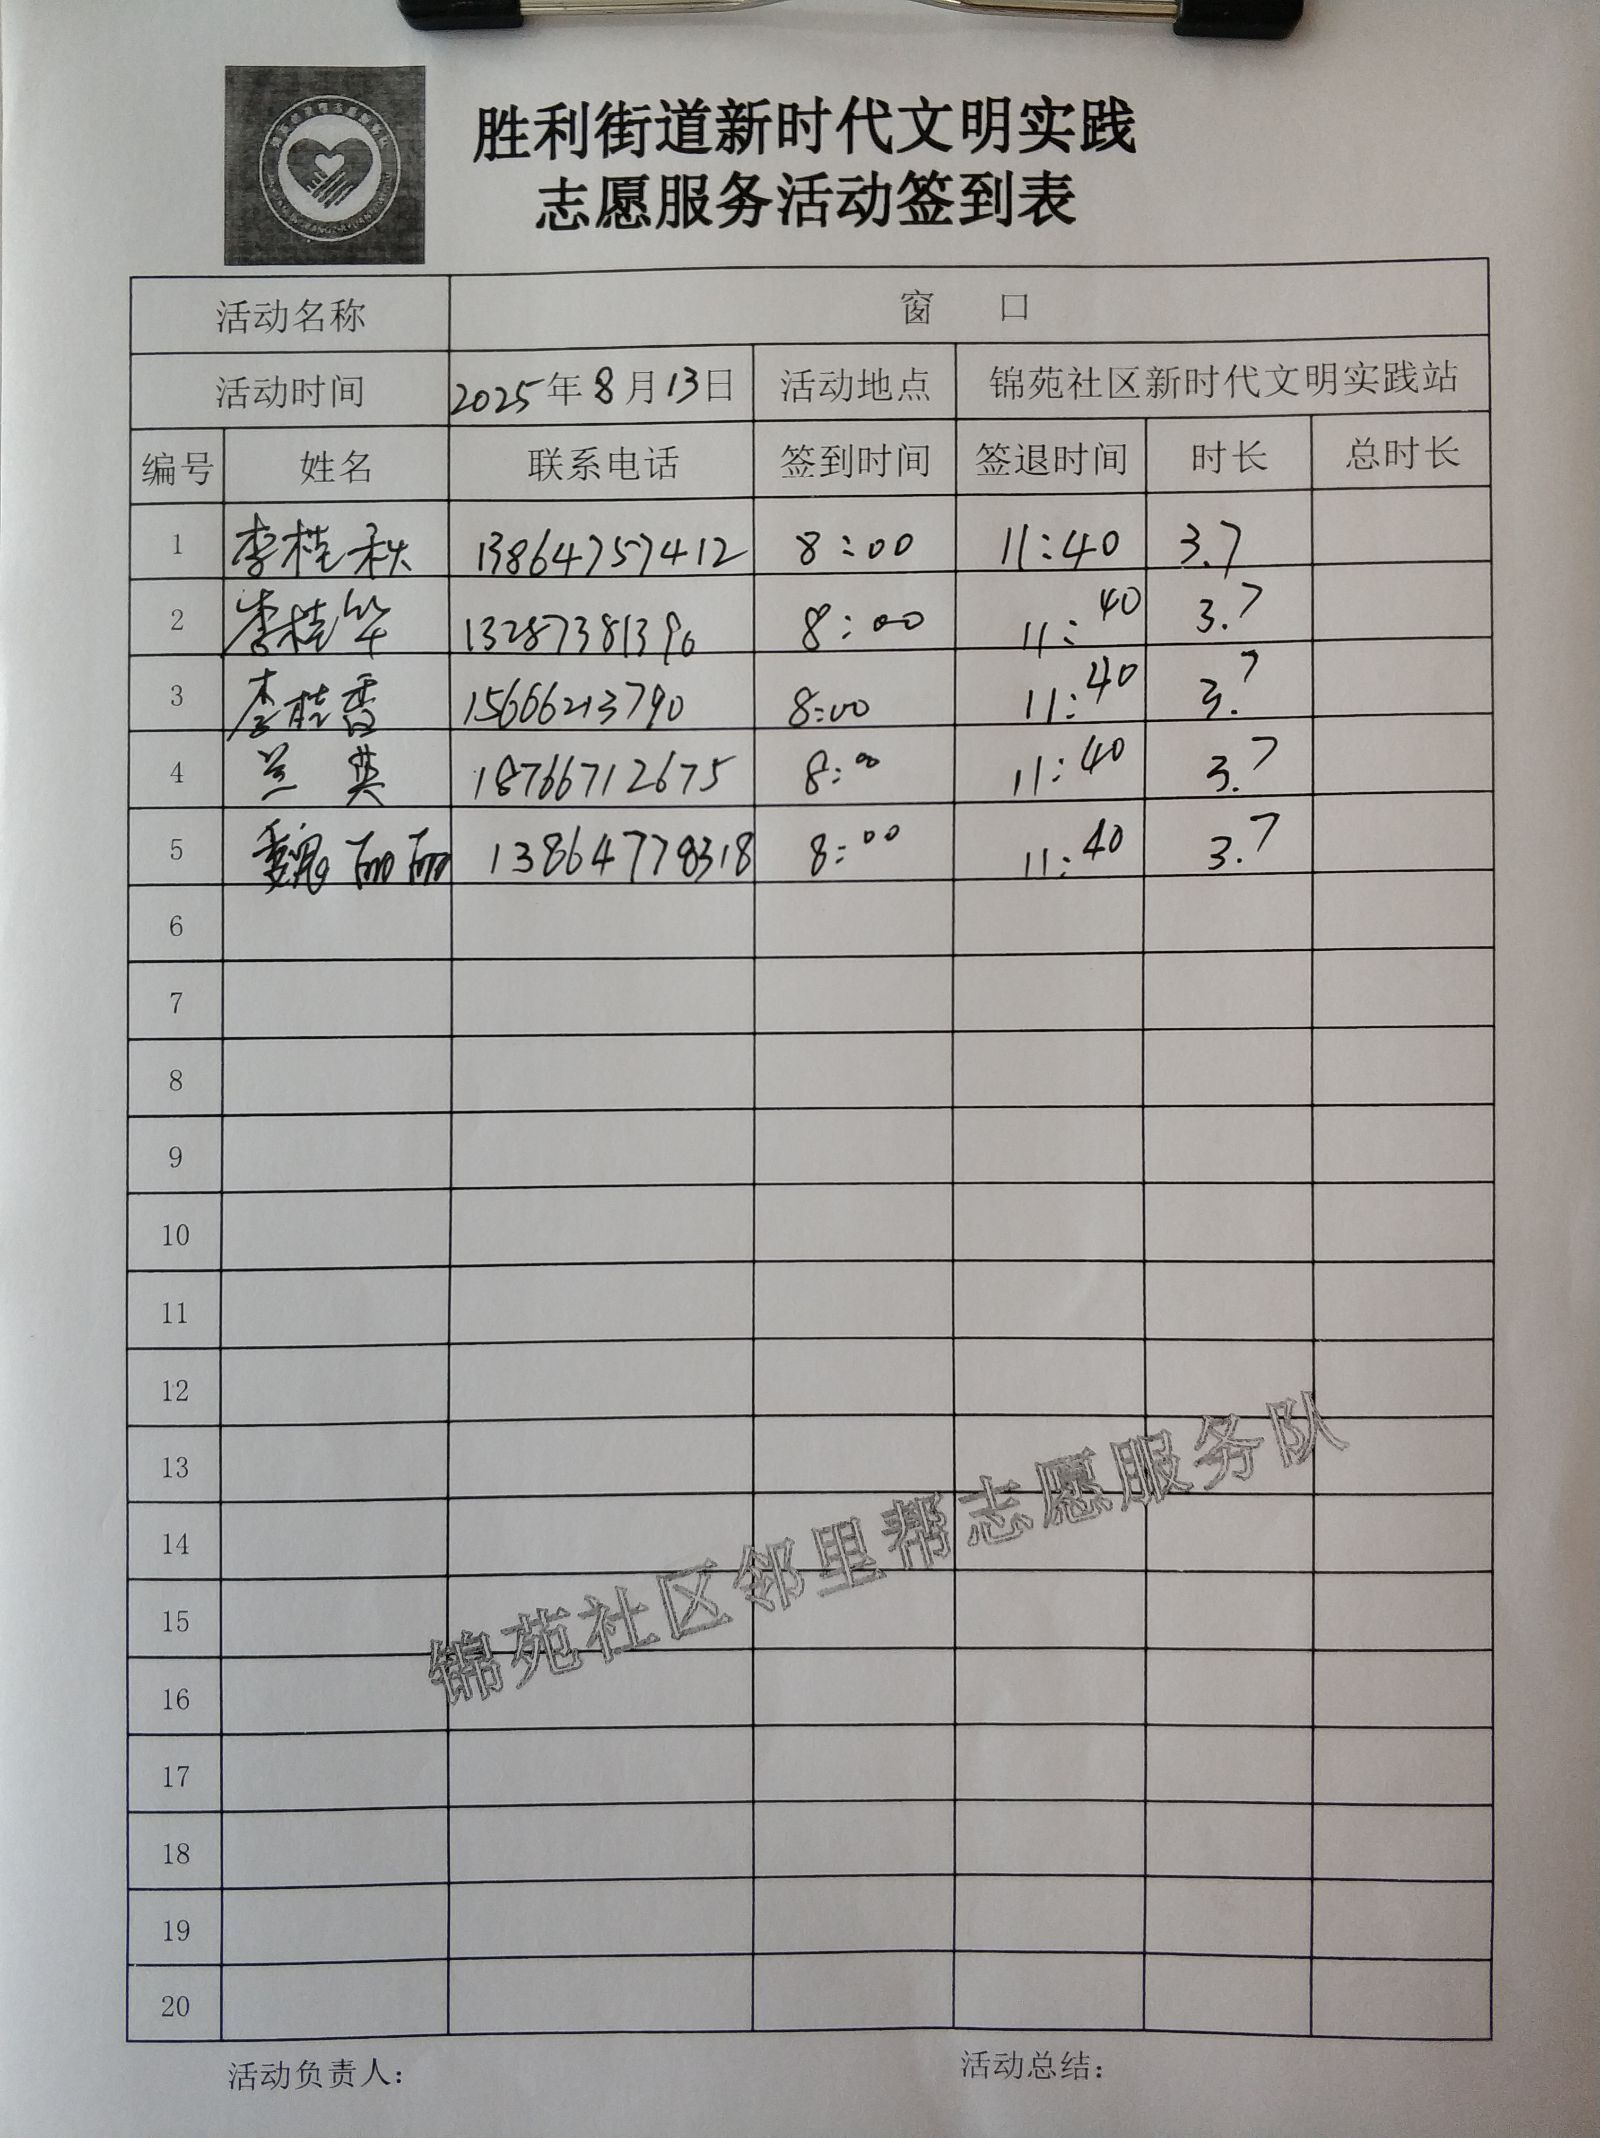 胜利街道新时代文明实践
志愿服务活动签到表
活动名称 窗 口
活动时间 2025年8月13日 活动地点 锦苑社区新时代文明实践站
编号 姓名 联系电话 签到时间 签退时间 时长 总时长
1 李桂秋 13864757412 8:00 11:40 3.7
2 李桂华 13287381390 8:00 11:40 3.7
3 李桂香 15666213790 8:00 11:40 3.7
4 兰英 18766712675 8:00 11:40 3.7
5 魏丽丽 13864778318 8:00 11:40 3.7
6
7
8
9
10
11
12
13
14
15
16
17
18
19
20
锦苑社区邻里帮志愿服务队
活动负责人: 活动总结: